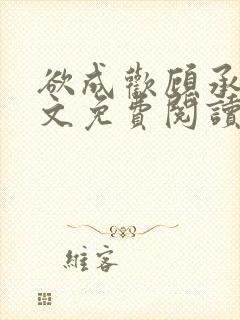 欲成歡顧承
文免費閱讀
維客